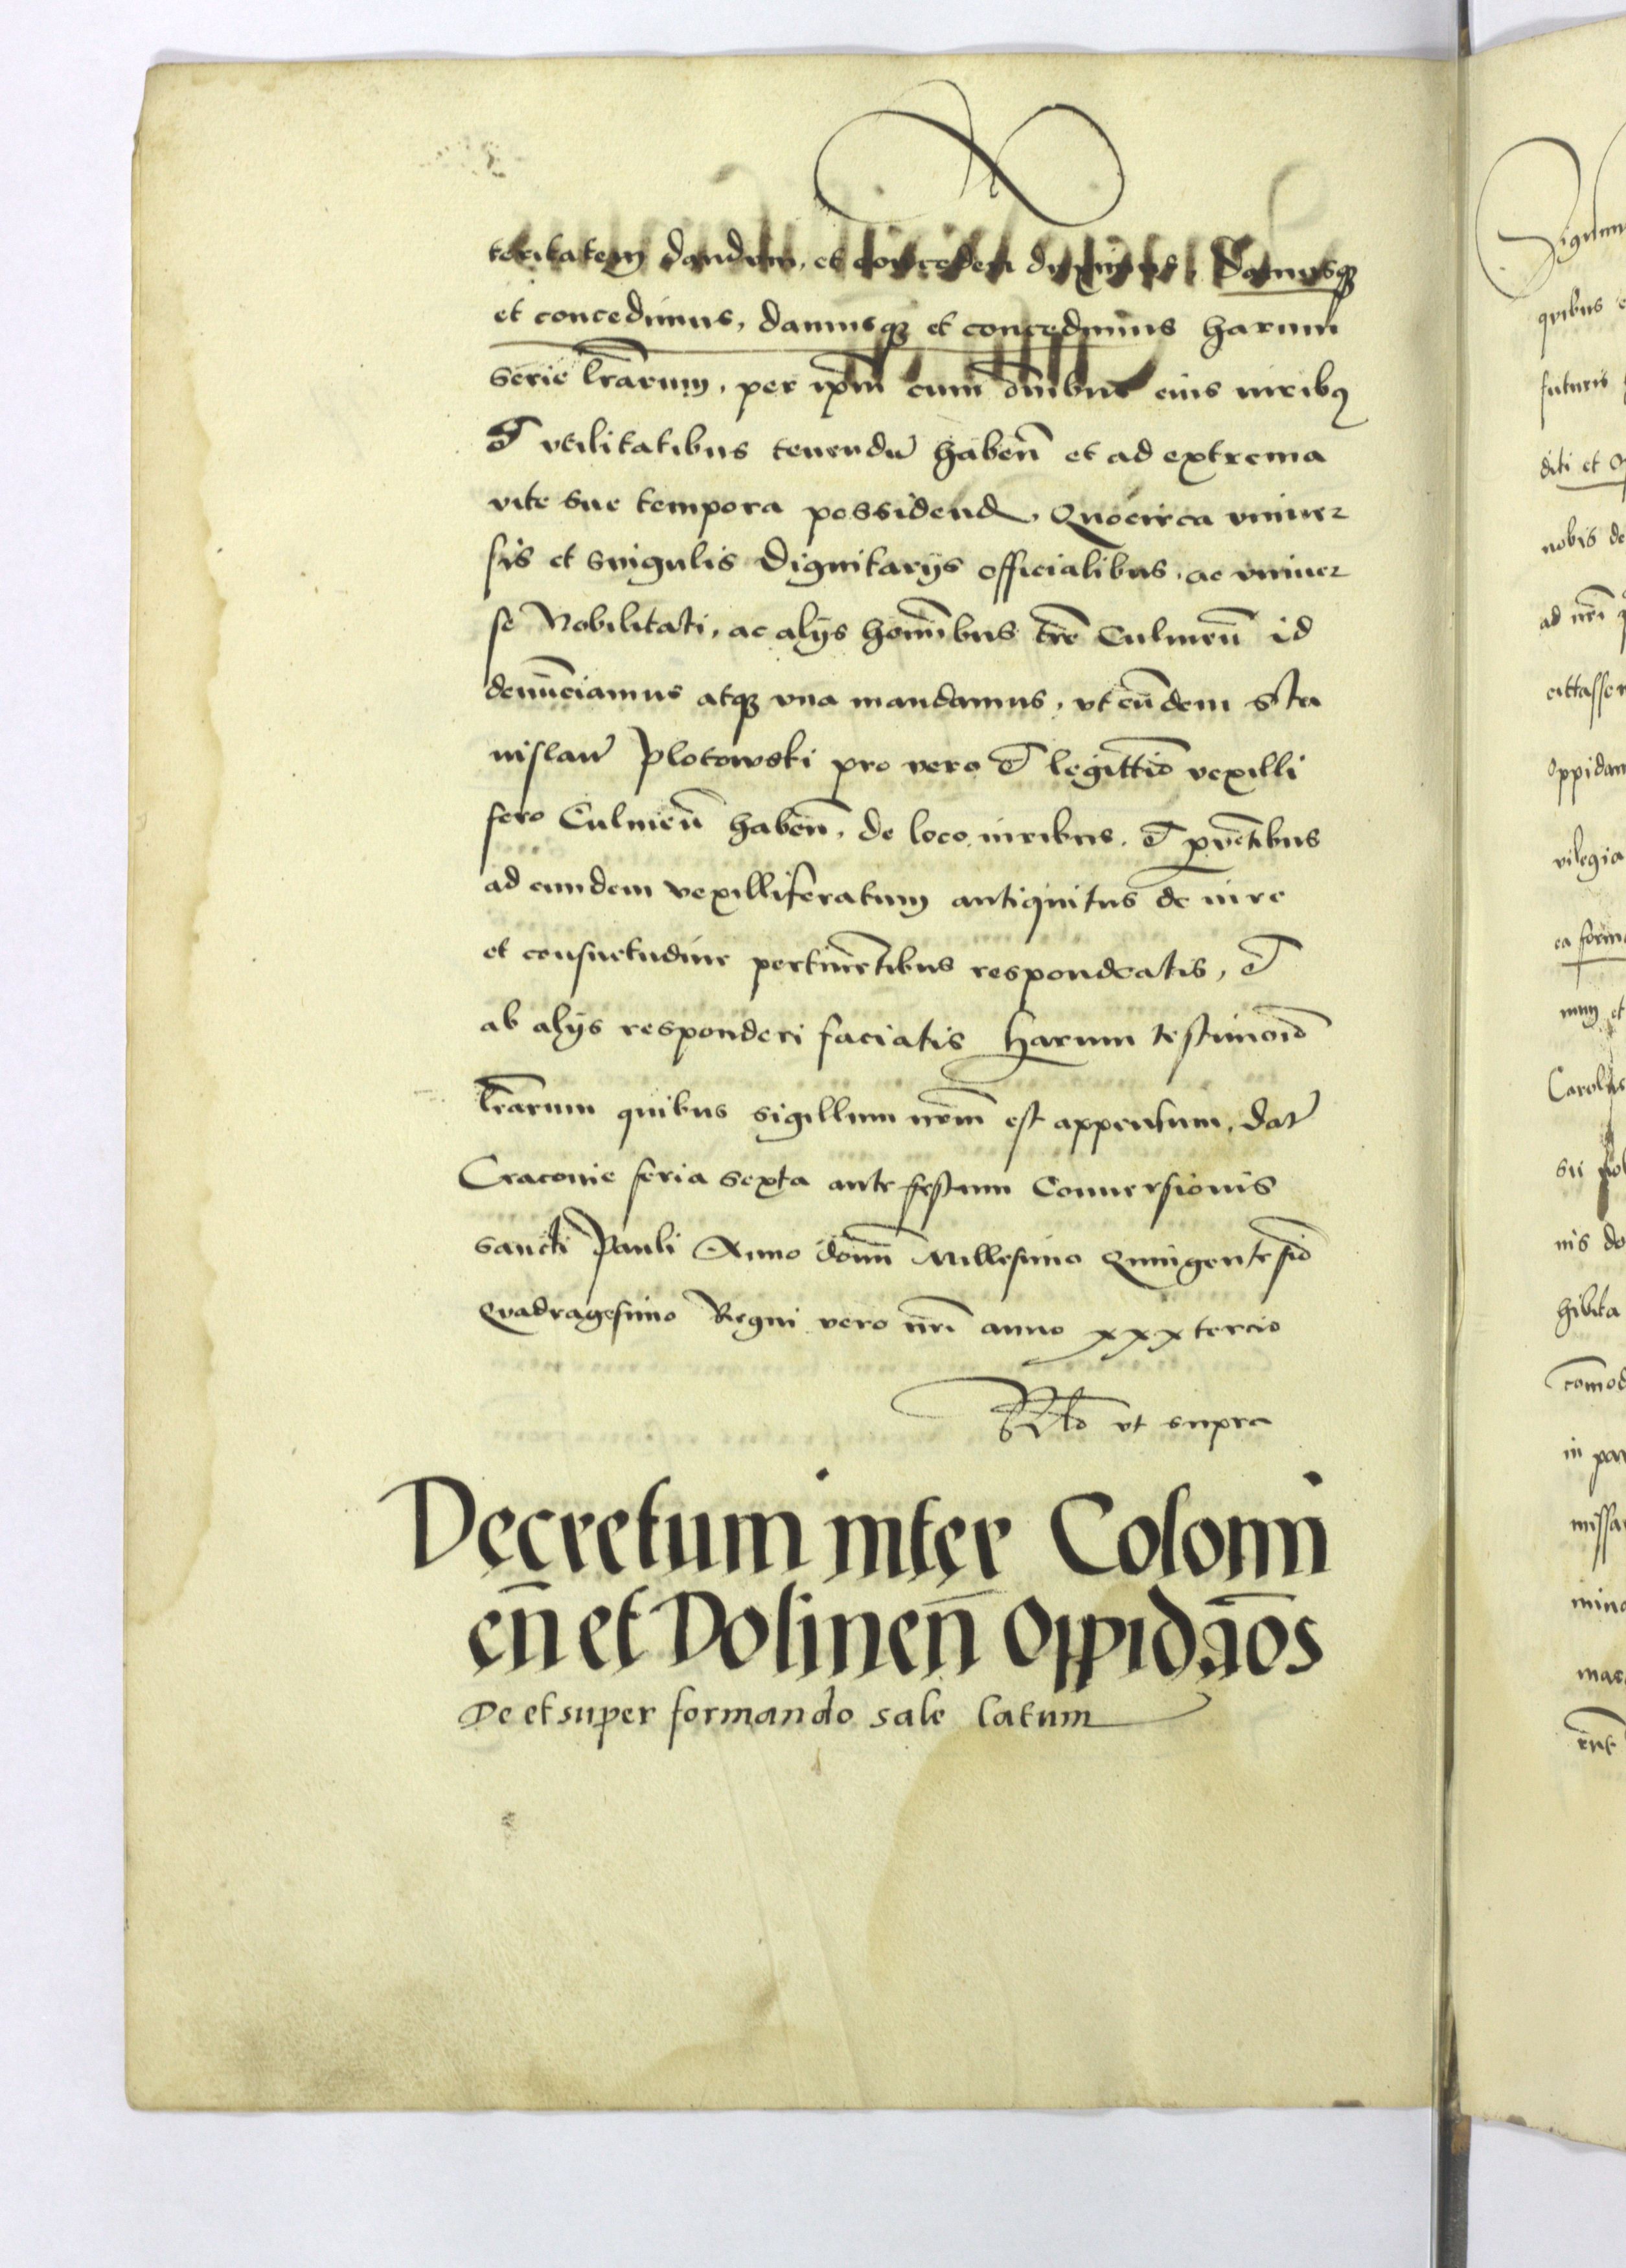 teritatem dandum, et conceden duximus, Damusq3
et concedimus, damusq3 et concedimus harum
serie lr̄arum, per ip̄m cum om̄ibus eius iurib9
et vtilitatibus tenendū haben̄ et ad extrema
vite sue tempora possidend, Quocirca vniuer
sis et singulis Dignitarijs officialibus, ac vniuer
se Nobilitati, ac alijs hominibus tr̄e Culmen̄ id
denūciamus atq3 vna mandamus, vt eūdem Sta
nislaū Plotowski pro vero et legittiō vexilli
fero Culmen̄ haben̄, de loco, iuribus, et prouētibus
ad eundem vexilliferatum antiquitus de iure
et consuetudine pertinētibus respondeatis, et
ab alijs responderi faciatis Harum testimoīo
lr̄arum quibus sigillum nr̄m est appensum, dat
Cracouie feria sexta ante festum Conuersionis
sancti Pauli Anno domī Millesimo Quingentesiō
Quadragesimo Regni vero nr̄i anno xxx tercio
Rlō vt supra
Decretum inter Colomi
en̄ et Dolinen̄ Oppidāos
De et super formando sale latum
quibus
futuris
diti et
nobis de
ad nr̄i
oppidan
vilegia
ea form
Carolus
nis do
hibita
in par
missa